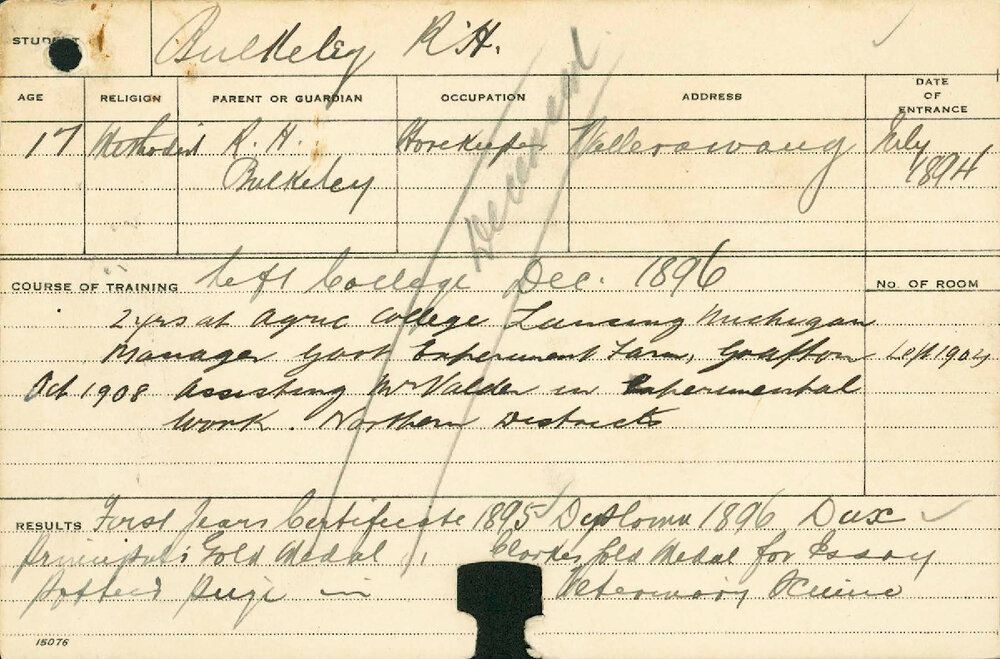 STUDENT Bulkeley R. H.
AGE RELIGION PARENT OR GUARDIAN OCCUPATION ADDRESS DATE OF ENTRANCE
17 Methodist R. H. Bulkeley Storekeeper Wallerawang July 1894
Deceased
COURSE OF TRAINING Left College Dec. 1896 No. OF ROOM
2 yrs at Agric College Lansing Michigan
Manager Govt Experiment Farm, Grafton Sept 1904
Oct 1908 Assisting Mr Valder in Experimental
Work. Northern Districts
RESULTS First Years Certificate 1895 Diploma 1896 Dux
Principal's Gold Medal, Gold Medal for Essay
Prize in Veterinary Science
15076